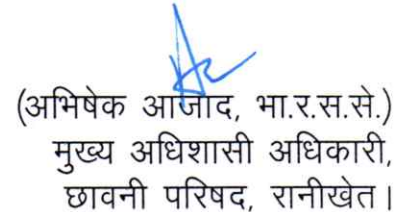 (अभिषेक आजाद, भा.र.स.से.)
मुख्य अधिशासी अधिकारी,
छावनी परिषद, रानीखेत।